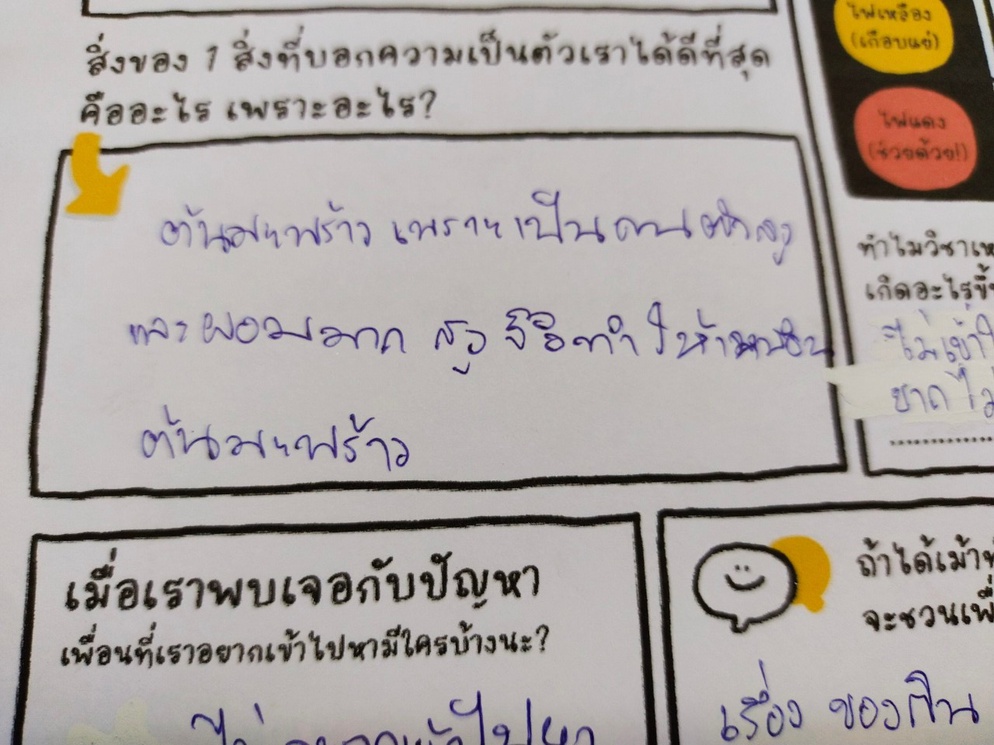 สิ่งของ 1 สิ่งที่บอกความเป็นตัวเราได้ดีที่สุด
คืออะไร เพราะอะไร?
ต้นมะพร้าว เพราะเป็นคนตัวสูง
และผอมมาก สูง จึงทำให้เหมือน
ต้นมะพร้าว
ไฟเหลือง
(เกือบแย่)
ไฟแดง
(ช่วยด้วย!)
ทำไมวิชาเห
เกิดอะไรขึ้
ไม่เข้าใ
ขาดไม่
เมื่อเราพบเจอกับปัญหา
เพื่อนที่เราอยากเข้าไปหามีใครบ้างนะ?
ถ้าได้เม้าท์
จะชวนเพื่
เรื่อง ของกิน